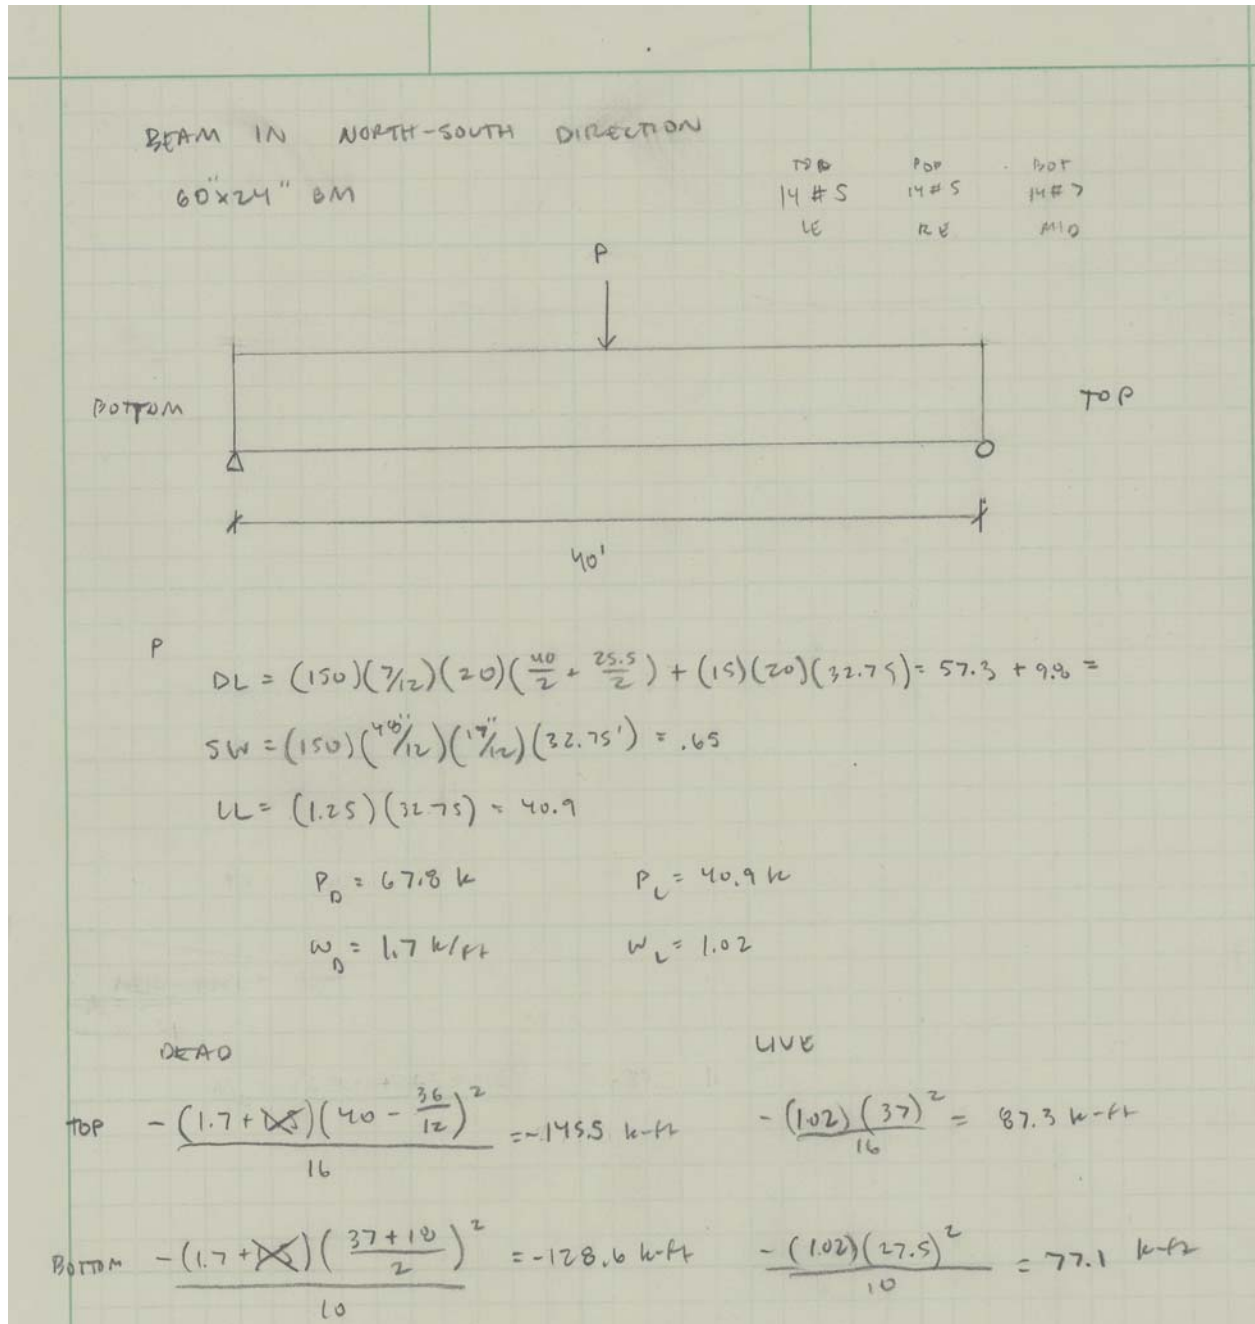 BEAM IN NORTH-SOUTH DIRECTION
60"x24" BM
TOP POP BOT
14 #5 14 #5 14 #7
LE RE MID
P
BOTTOM TOP
40'
P
DL = (150)(7/12)(20)(40/2 + 25.5/2) + (15)(20)(32.75) = 57.3 + 9.8 =
SW = (150)(48"/12)(/12)(32.75') = .65
LL = (1.25)(32.75) = 40.9
P_D = 67.8 k P_L = 40.9 k
w_D = 1.7 k/ft w_L = 1.02
DEAD LIVE
TOP -(1.7 + )(40 - 36/12)^2 / 16 = -145.5 k-ft -(1.02)(37)^2 / 16 = 87.3 k-ft
BOTTOM -(1.7 + )((37+18)/2)^2 / 10 = -128.6 k-ft -(1.02)(27.5)^2 / 10 = 77.1 k-ft